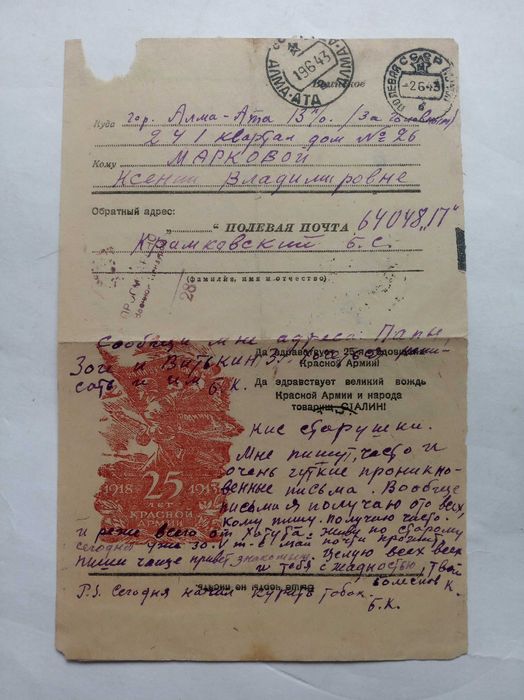 АЛМА-АТА
19.6.43
ПОЛЕВАЯ СССР
-2.6.43
Куда гор. Алма-Ата 13 п/о.
241 квартал дом № 26
Кому МАРКОВОЙ
Ксении Владимировне
Обратный адрес:
„ “ ПОЛЕВАЯ ПОЧТА 64048„П“
Крамковский Б.С.
(фамилия, имя и отчество)
28
Сообщи мне адреса Папы,
Зои и
Да здравствует 25-я годовщина
Красной Армии!
Б.К.
Да здравствует великий вождь
Красной Армии и народа
товарищ СТАЛИН!
1918 25 1943
ЛЕТ
КРАСНОЙ
АРМИИ
кие старушки.
Мне пишут часто и
очень чуткие проникно-
венные письма. Вообще
письма я получаю ото всех
кому пишу. получаю часто.
и реже всего от Живу по старому
сегодня уже 30.V
пиши чаще привет знакомым. Целую всех всех
и тебя с жадностью, Твой
Б.К.
P.S. Сегодня начал курить табак.